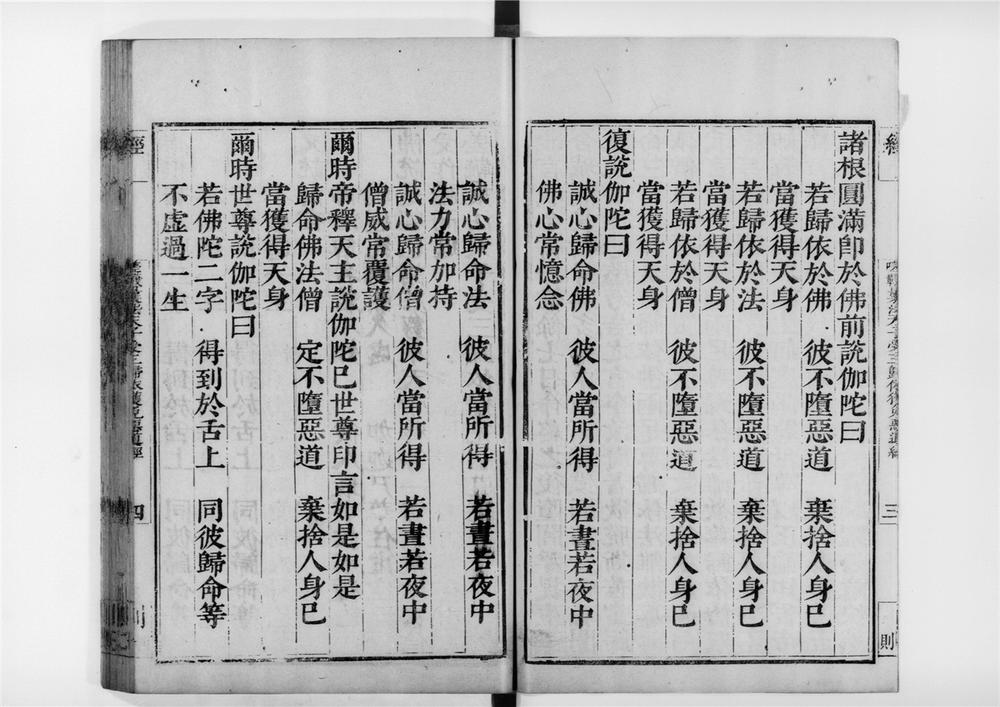 諸根圓滿卽於佛前說伽陀曰
若歸依於佛 彼不墮惡道 棄捨人身已
當獲得天身
若歸依於法 彼不墮惡道 棄捨人身已
當獲得天身
若歸依於僧 彼不墮惡道 棄捨人身已
當獲得天身
復說伽陀曰
誠心歸命佛 彼人當所得 若晝若夜中
佛心常憶念
誠心歸命法 彼人當所得 若晝若夜中
法力常加持
誠心歸命僧 彼人當所得 若晝若夜中
僧威常覆護
爾時帝釋天主說伽陀已世尊印言如是如是
歸命佛法僧 定不墮惡道 棄捨人身已
當獲得天身
爾時世尊說伽陀曰
若佛陀二字 得到於舌上 同彼歸命等
不虛過一生
三
則
經
四